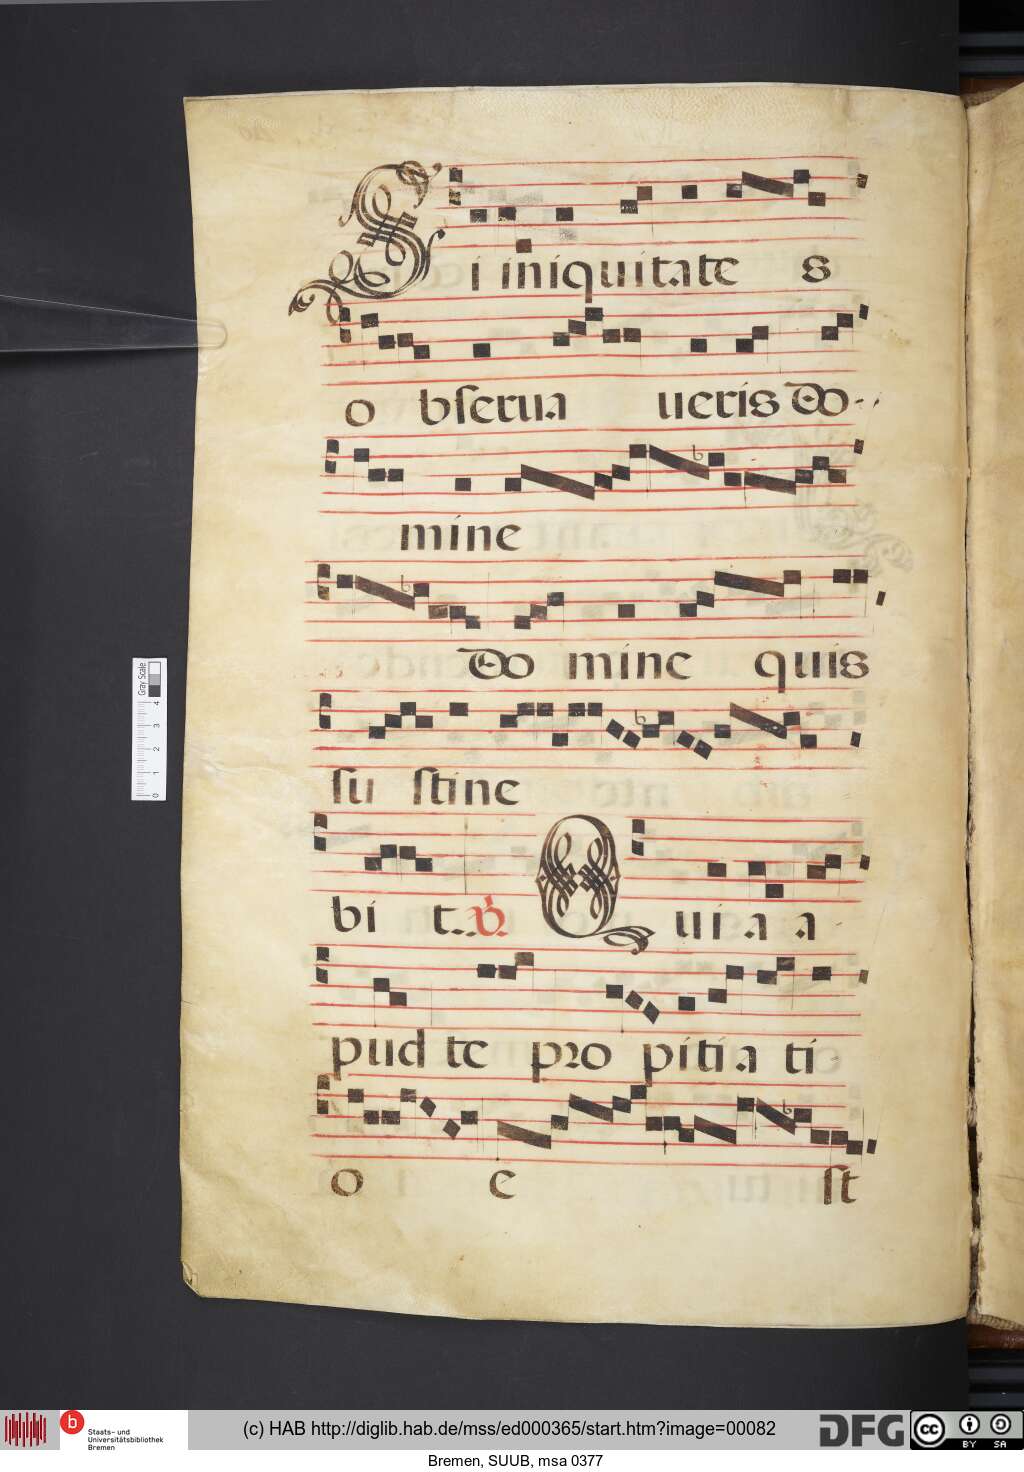 Si iniquitate s
o bſerua ueris do
mine
do mine quis
ſu ſtine
bi t. ℟ Quia a
pud te pro pitia ti
o e ſt
Gray Scale
4 3 2 1 0
b
Staats- und
Universitätsbibliothek
Bremen
(c) HAB http://diglib.hab.de/mss/ed000365/start.htm?image=00082
DFG
cc BY SA
Bremen, SUUB, msa 0377